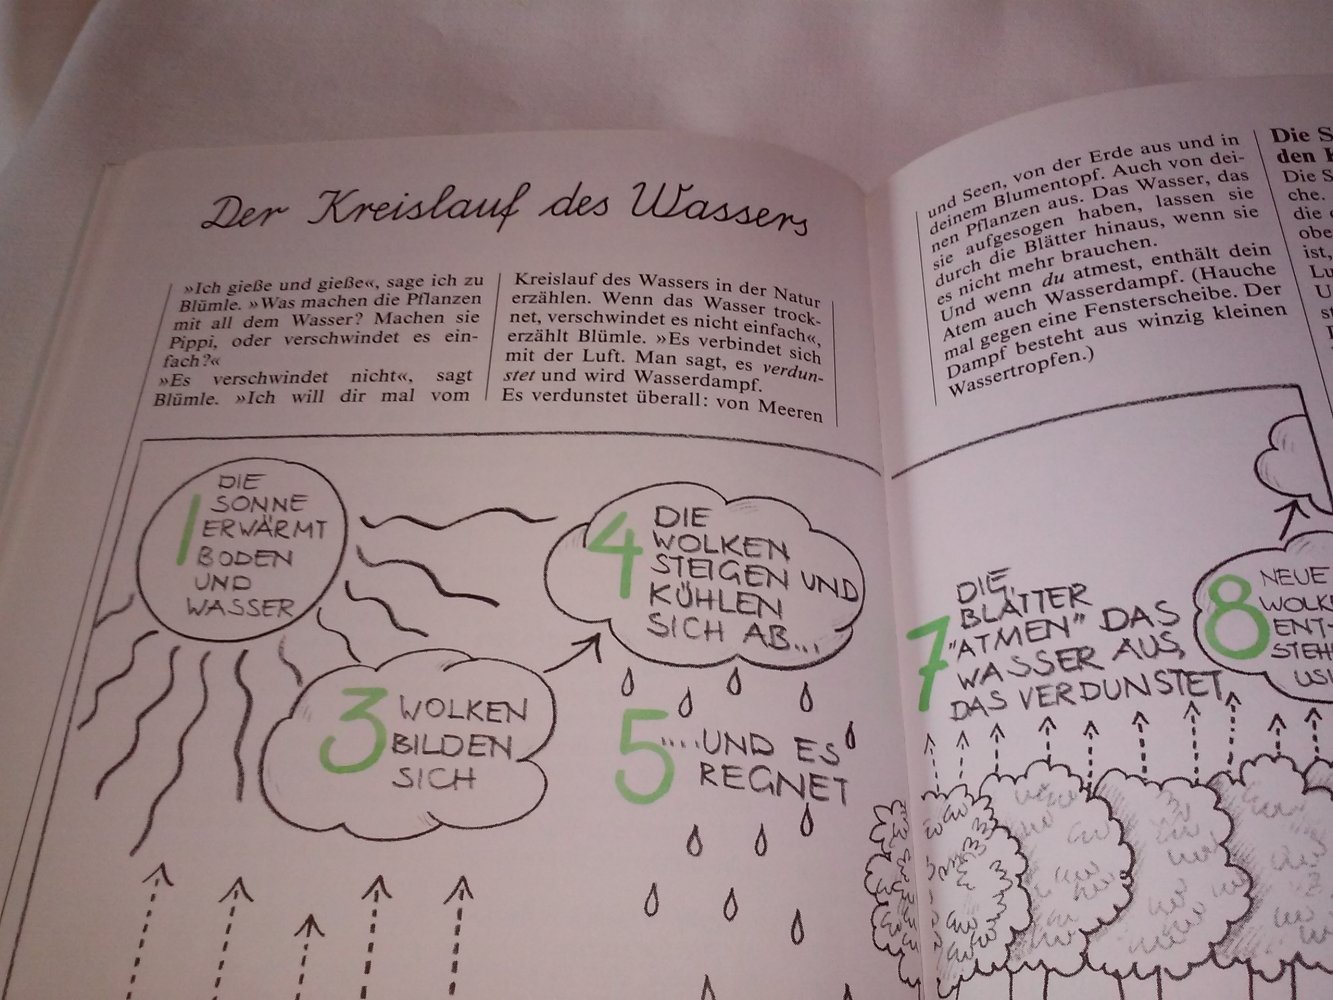 Der Kreislauf des Wassers
»Ich gieße und gieße«, sage ich zu
Blümle. »Was machen die Pflanzen
mit all dem Wasser? Machen sie
Pippi, oder verschwindet es ein-
fach?«
»Es verschwindet nicht«, sagt
Blümle. »Ich will dir mal vom
Kreislauf des Wassers in der Natur
erzählen. Wenn das Wasser trock-
net, verschwindet es nicht einfach«,
erzählt Blümle. »Es verbindet sich
mit der Luft. Man sagt, es verdun-
stet und wird Wasserdampf.
Es verdunstet überall: von Meeren
und Seen, von der Erde aus und in
deinem Blumentopf. Auch von dei-
nen Pflanzen aus. Das Wasser, das
sie aufgesogen haben, lassen sie
durch die Blätter hinaus, wenn sie
es nicht mehr brauchen.
Und wenn du atmest, enthält dein
Atem auch Wasserdampf. (Hauche
mal gegen eine Fensterscheibe. Der
Dampf besteht aus winzig kleinen
Wassertropfen.)
Die S
den
Die S
che.
die
obe
ist,
Lu
U
st
1 DIE
SONNE
ERWÄRMT
BODEN
UND
WASSER
3 WOLKEN
BILDEN
SICH
4 DIE
WOLKEN
STEIGEN UND
KÜHLEN
SICH AB...
5 ....UND ES
REGNET
7 DIE
BLÄTTER
"ATMEN" DAS
WASSER AUS,
DAS VERDUNSTET
8 NEUE
WOLK
ENT-
STEH
USW